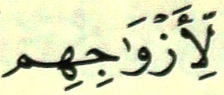 لِّأَزْوَاجِهِم